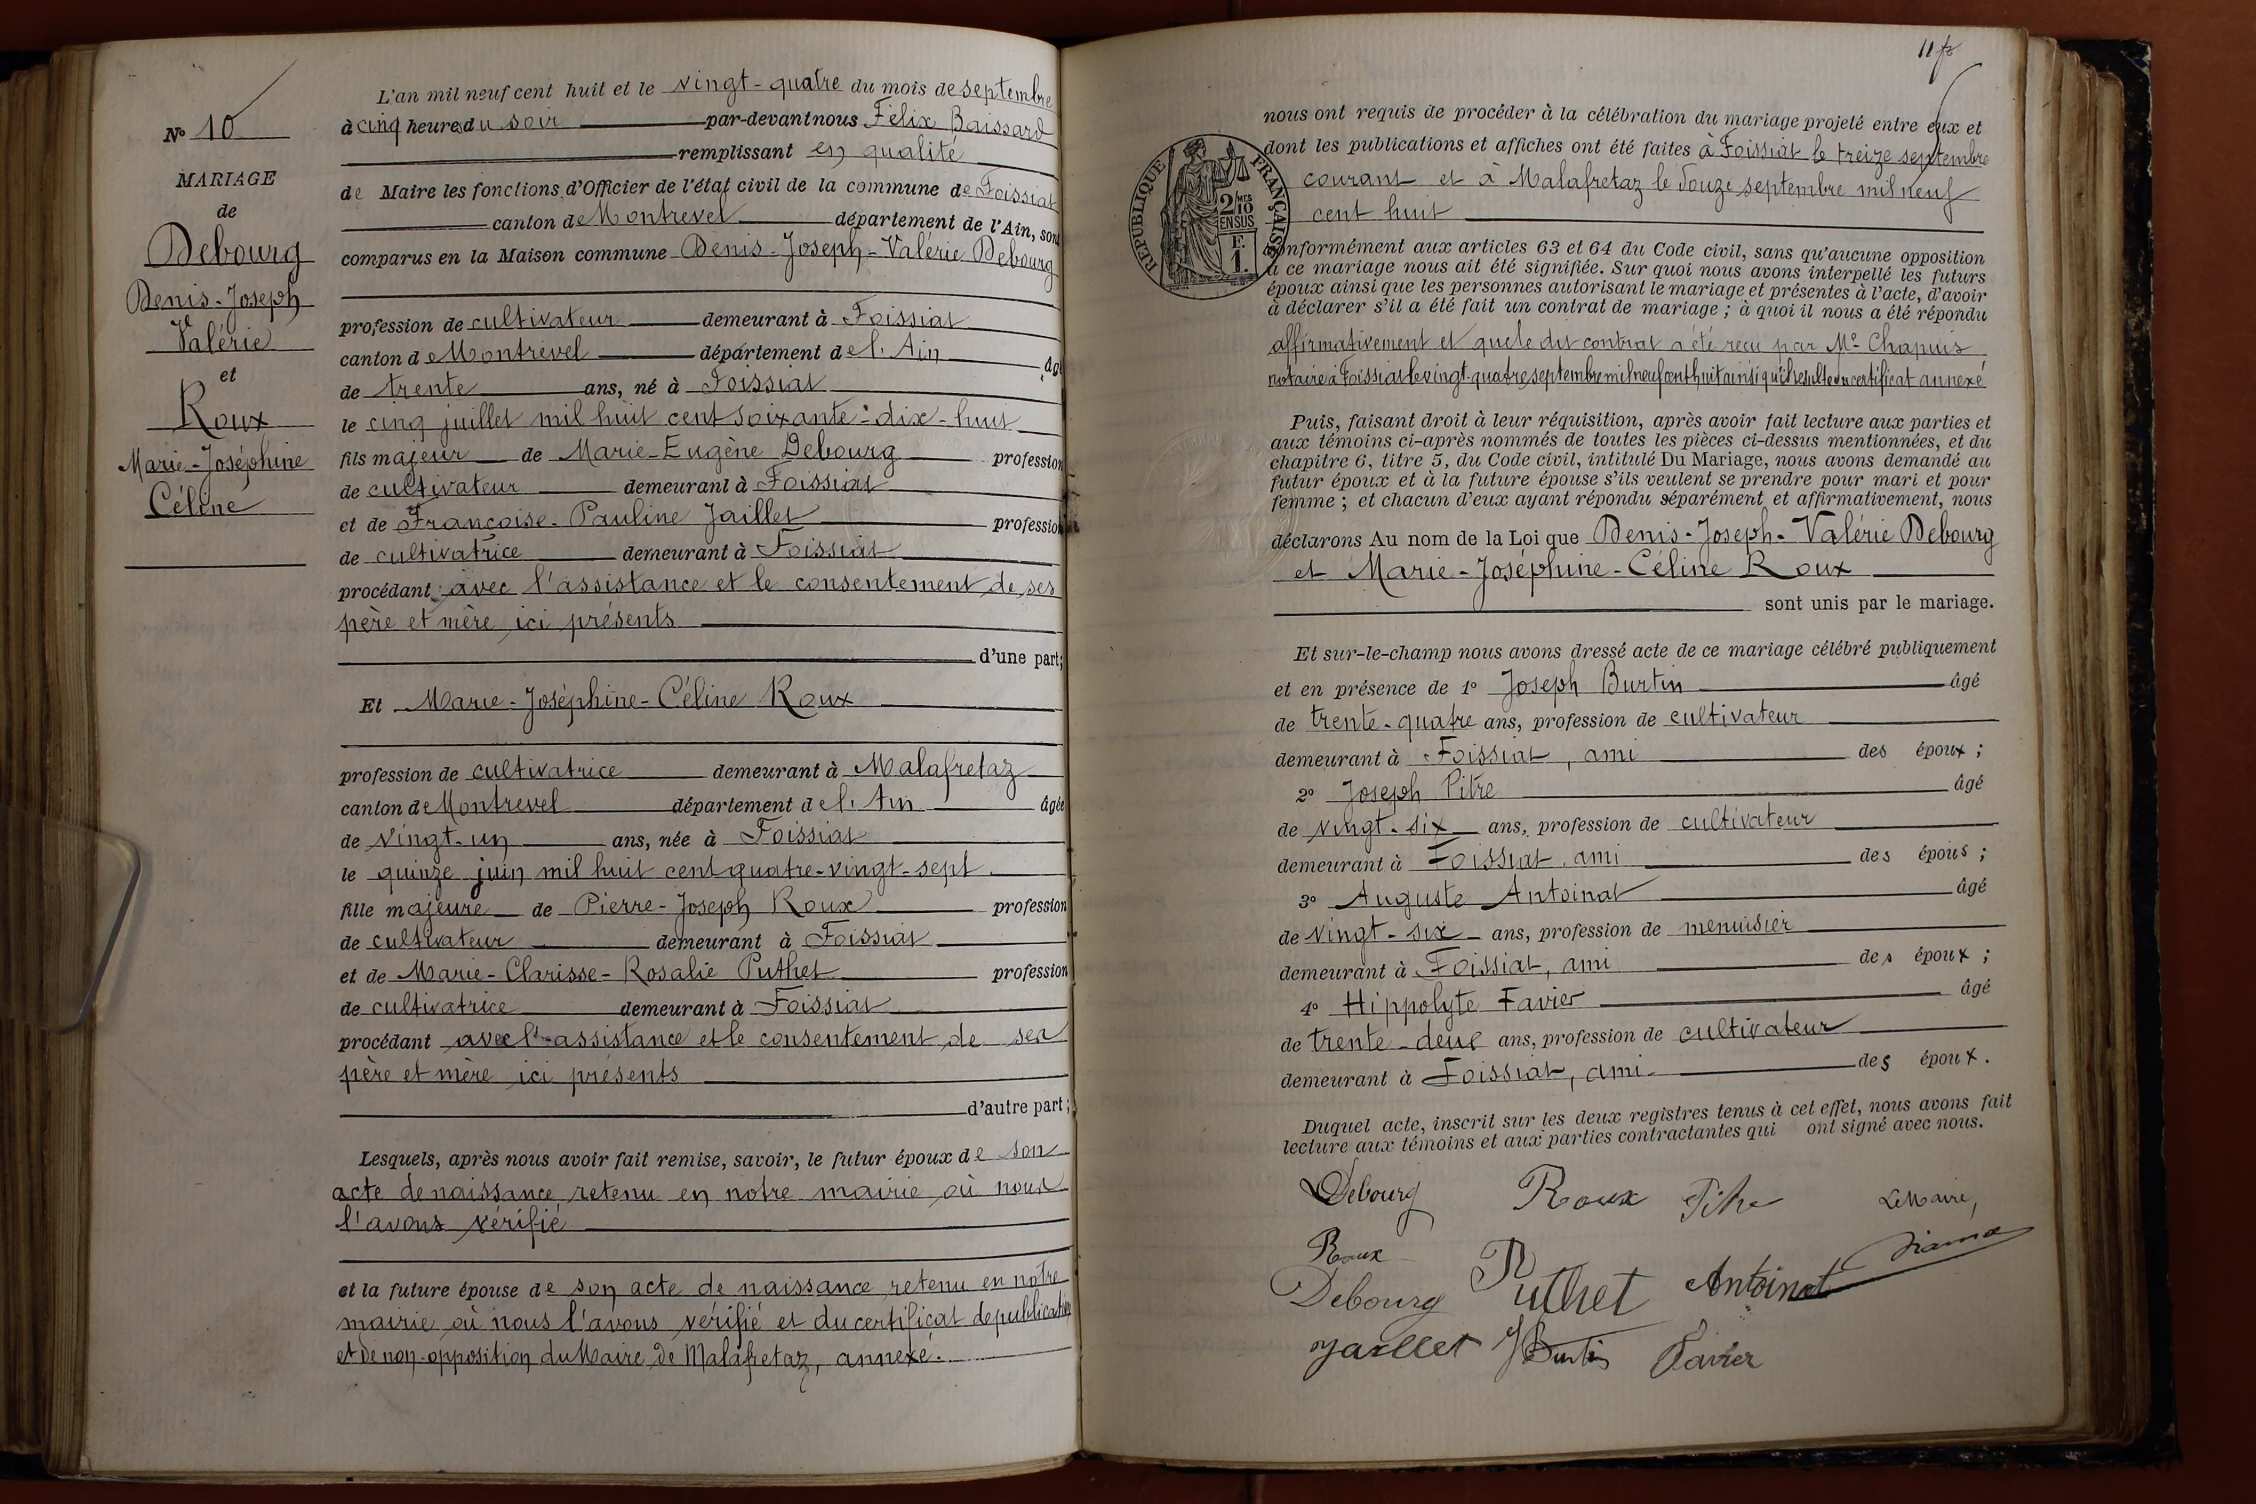 N° 10
MARIAGE
de
Debourg
Denis-Joseph
Valérie
et
Roux
Marie-Joséphine
Céline
L'an mil neuf cent huit et le vingt-quatre du mois de septembre
à cinq heures du soir par-devant nous Félix Baissard
remplissant en qualité
de Maire les fonctions d'Officier de l'état civil de la commune de Foissiat
canton de Montrevel département de l'Ain, sont
comparus en la Maison commune Denis-Joseph-Valérie Debourg
profession de cultivateur demeurant à Foissiat
canton de Montrevel département de l'Ain âgé
de trente ans, né à Foissiat
le cinq juillet mil huit cent soixante-dix-huit
fils majeur de Marie-Eugène Debourg profession
de cultivateur demeurant à Foissiat
et de Françoise-Pauline Jaillet profession
de cultivatrice demeurant à Foissiat
procédant avec l'assistance et le consentement de ses
père et mère ici présents
d'une part;
Et Marie-Joséphine-Céline Roux
profession de cultivatrice demeurant à Malafretaz
canton de Montrevel département de l'Ain âgée
de vingt-un ans, née à Foissiat
le quinze juin mil huit cent quatre-vingt-sept
fille majeure de Pierre-Joseph Roux profession
de cultivateur demeurant à Foissiat
et de Marie-Clarisse-Rosalie Puthet profession
de cultivatrice demeurant à Foissiat
procédant avec l'assistance et le consentement de ses
père et mère ici présents
d'autre part;
Lesquels, après nous avoir fait remise, savoir, le futur époux de son
acte de naissance retenu en notre mairie où nous
l'avons vérifié
et la future épouse de son acte de naissance retenu en notre
mairie où nous l'avons vérifié et du certificat de publication
et de non-opposition du Maire de Malafretaz, annexé.
11
RÉPUBLIQUE FRANÇAISE
2/10 MES
EN SUS
F.
1.
nous ont requis de procéder à la célébration du mariage projeté entre eux et
dont les publications et affiches ont été faites à Foissiat le treize septembre
courant et à Malafretaz le douze septembre mil neuf
cent huit
conformément aux articles 63 et 64 du Code civil, sans qu'aucune opposition
à ce mariage nous ait été signifiée. Sur quoi nous avons interpellé les futurs
époux ainsi que les personnes autorisant le mariage et présentes à l'acte, d'avoir
à déclarer s'il a été fait un contrat de mariage; à quoi il nous a été répondu
affirmativement et que le dit contrat a été reçu par Me Chapuis
notaire à Foissiat le vingt-quatre septembre mil neuf cent huit ainsi qu'il résulte du certificat annexé
Puis, faisant droit à leur réquisition, après avoir fait lecture aux parties et
aux témoins ci-après nommés de toutes les pièces ci-dessus mentionnées, et du
chapitre 6, titre 5, du Code civil, intitulé Du Mariage, nous avons demandé au
futur époux et à la future épouse s'ils veulent se prendre pour mari et pour
femme; et chacun d'eux ayant répondu séparément et affirmativement, nous
déclarons Au nom de la Loi que Denis-Joseph-Valérie Debourg
et Marie-Joséphine-Céline Roux
sont unis par le mariage.
Et sur-le-champ nous avons dressé acte de ce mariage célébré publiquement
et en présence de 1° Joseph Burtin âgé
de trente-quatre ans, profession de cultivateur
demeurant à Foissiat, ami des époux;
2° Joseph Pitre âgé
de vingt-six ans, profession de cultivateur
demeurant à Foissiat, ami des époux;
3° Auguste Antoinat âgé
de vingt-six ans, profession de menuisier
demeurant à Foissiat, ami des époux;
4° Hippolyte Favier âgé
de trente-deux ans, profession de cultivateur
demeurant à Foissiat, ami des époux.
Duquel acte, inscrit sur les deux registres tenus à cet effet, nous avons fait
lecture aux témoins et aux parties contractantes qui ont signé avec nous.
Debourg Roux Pitre Le Maire,
Roux
Debourg Puthet Antoinat
Jaillet J Burtin Favier